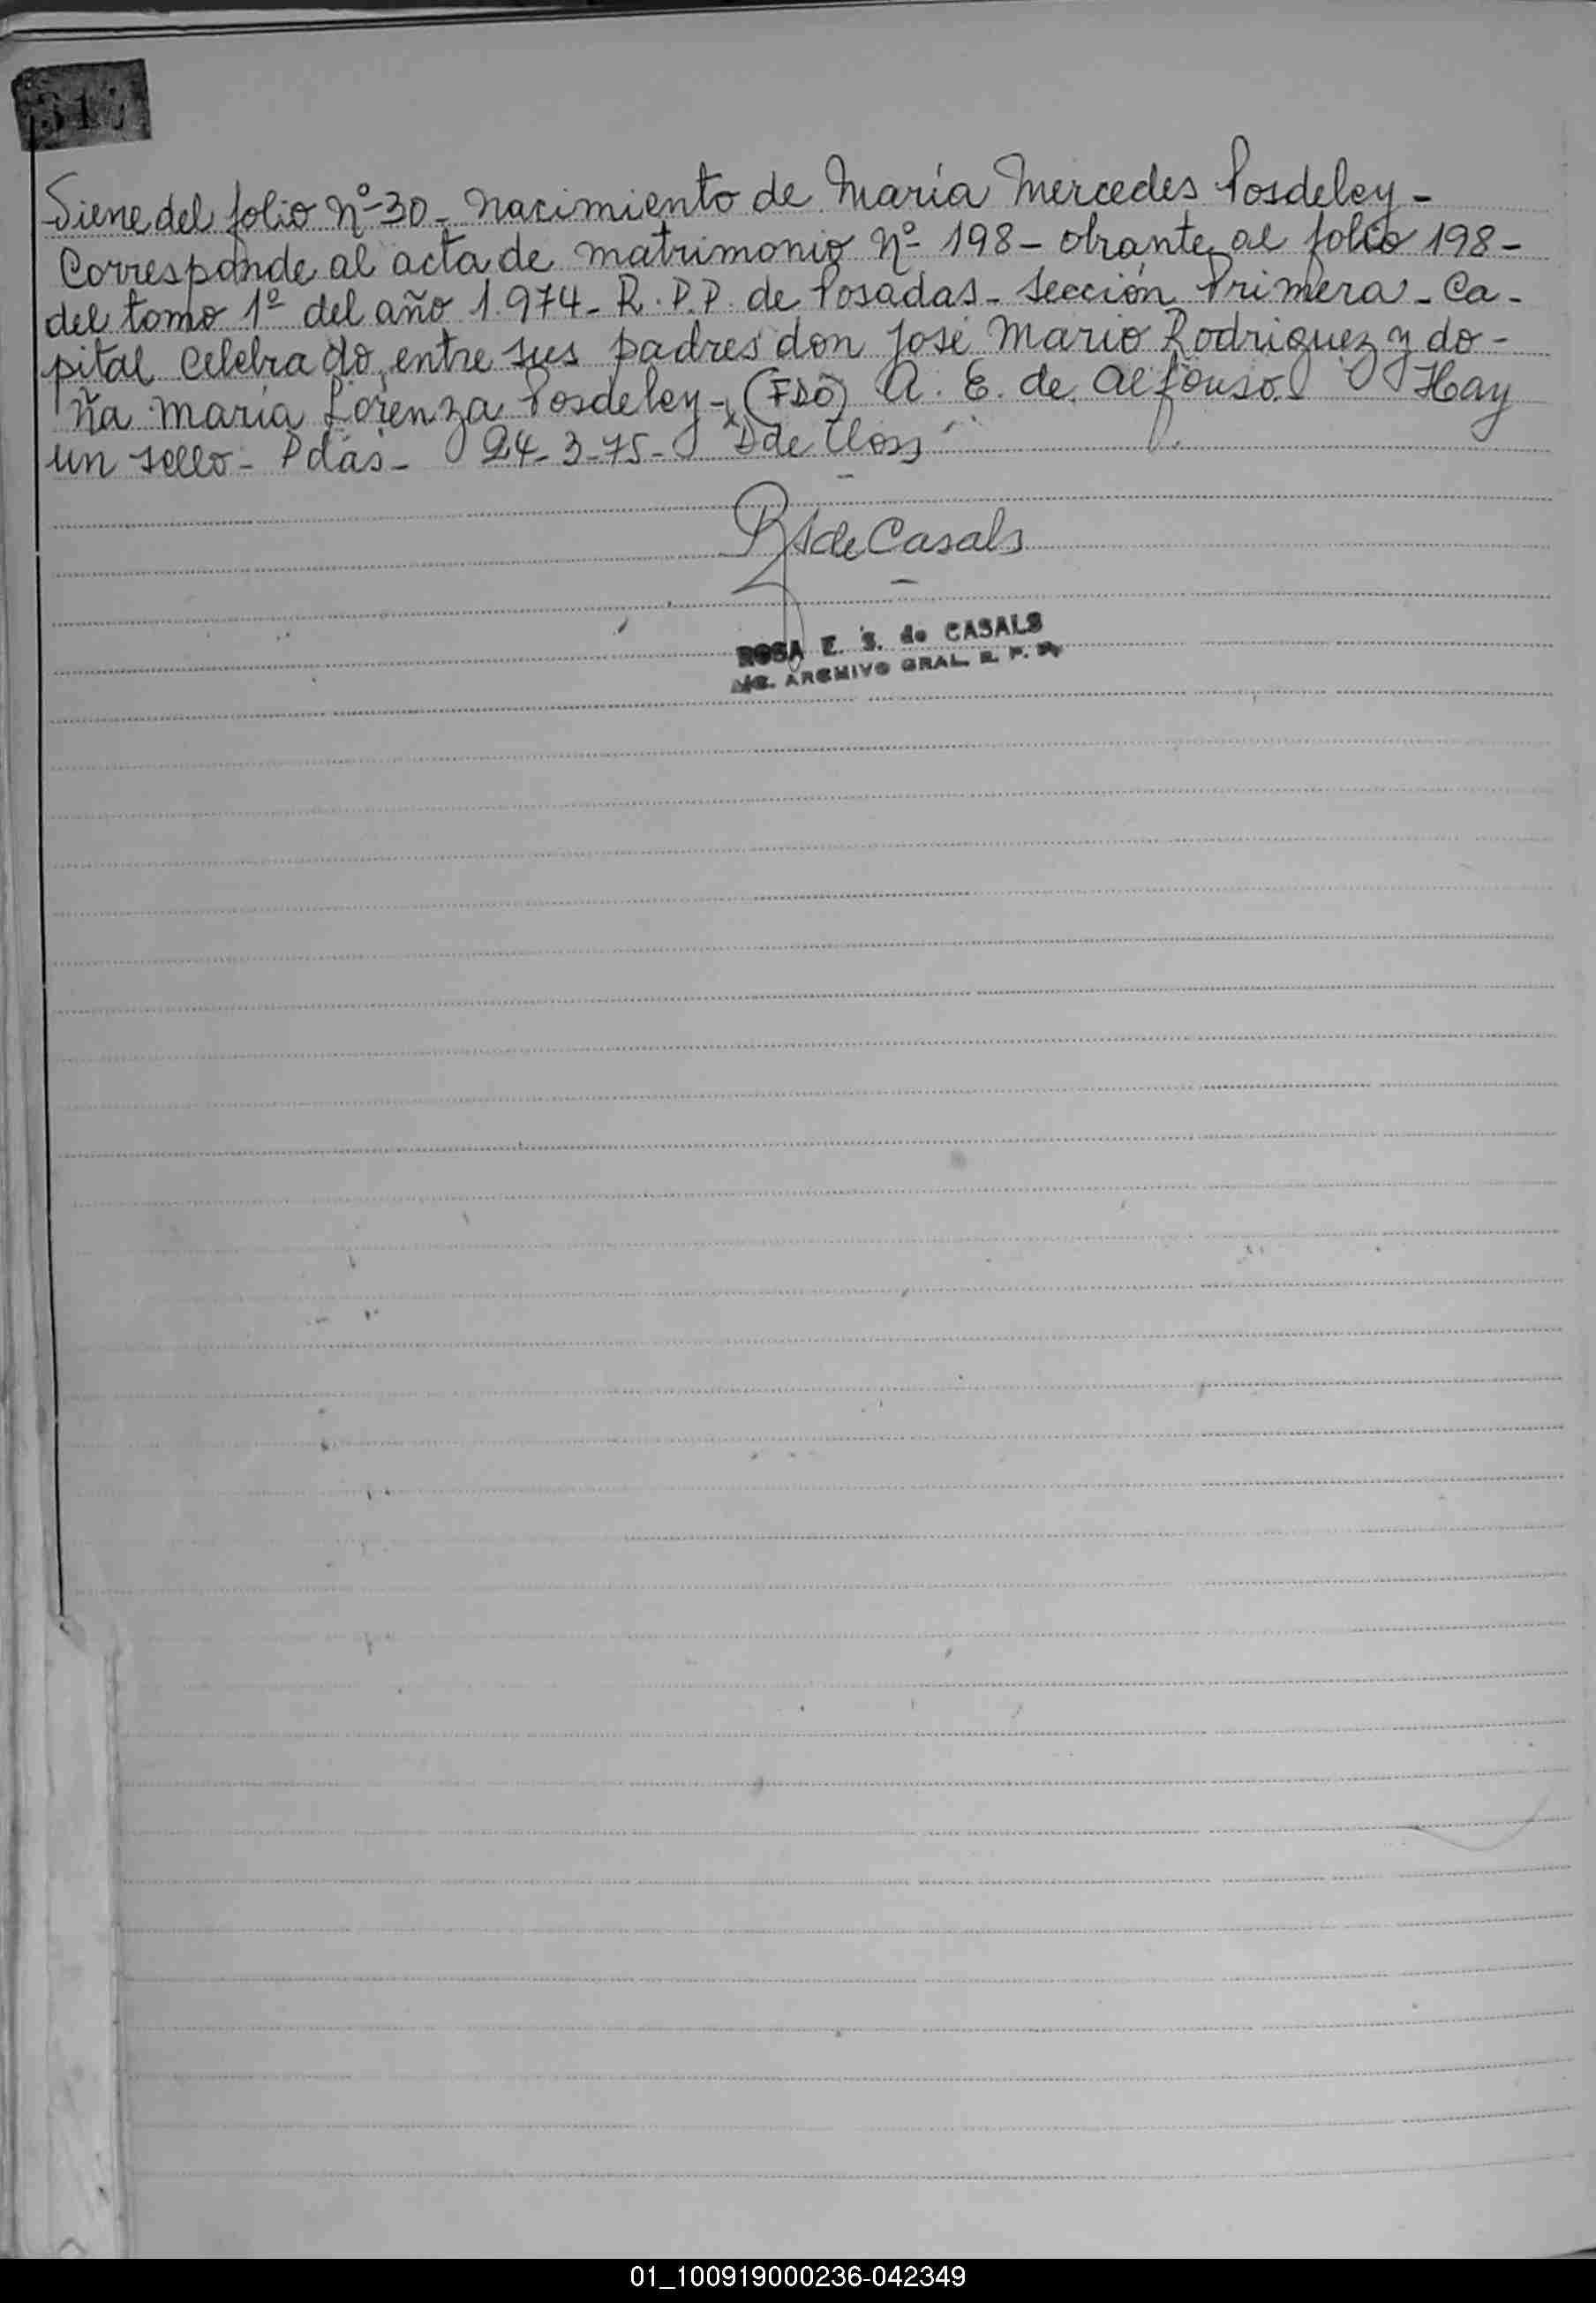 317
Viene del folio Nº 30 - nacimiento de María Mercedes Posdeley -
Corresponde al acta de matrimonio Nº 198 - obrante al folio 198 -
del tomo 1º del año 1.974 - R.P.P. de Posadas - Sección Primera - Ca-
pital celebrado entre sus padres don José Mario Rodriguez y do-
ña María Lorenza Posdeley - (FDO) A. E. de Alfonso. Hay
un sello - Pdas - 24-3-75 - D de Closs
R S de Casals
ROSA E. S. de CASALS
ARCHIVO GRAL. R. P. P.
01_100919000236-042349